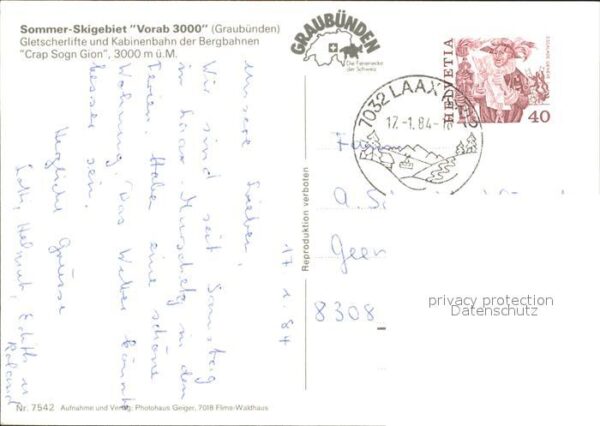 Sommer-Skigebiet "Vorab 3000" (Graubünden)
Gletscherlifte und Kabinenbahn der Bergbahnen
"Crap Sogn Gion", 3000 m ü.M.
GRAUBÜNDEN
Die Ferienecke
der Schweiz
HELVETIA
40
7032 LAAX
17.-1.84-
17.1.84
Unsere Lieben,
Wir sind seit Samstag
in Laax-Murschetg in den
Ferien. Haben eine schöne
Wohnung. Das Wetter könnte
besser sein.
Herzliche Grüsse
Helmut, Edith u.
Roland
Reproduktion verboten
A.
8308
privacy protection
Datenschutz
Nr. 7542 Aufnahme und Verlag: Photohaus Geiger, 7018 Flims-Waldhaus